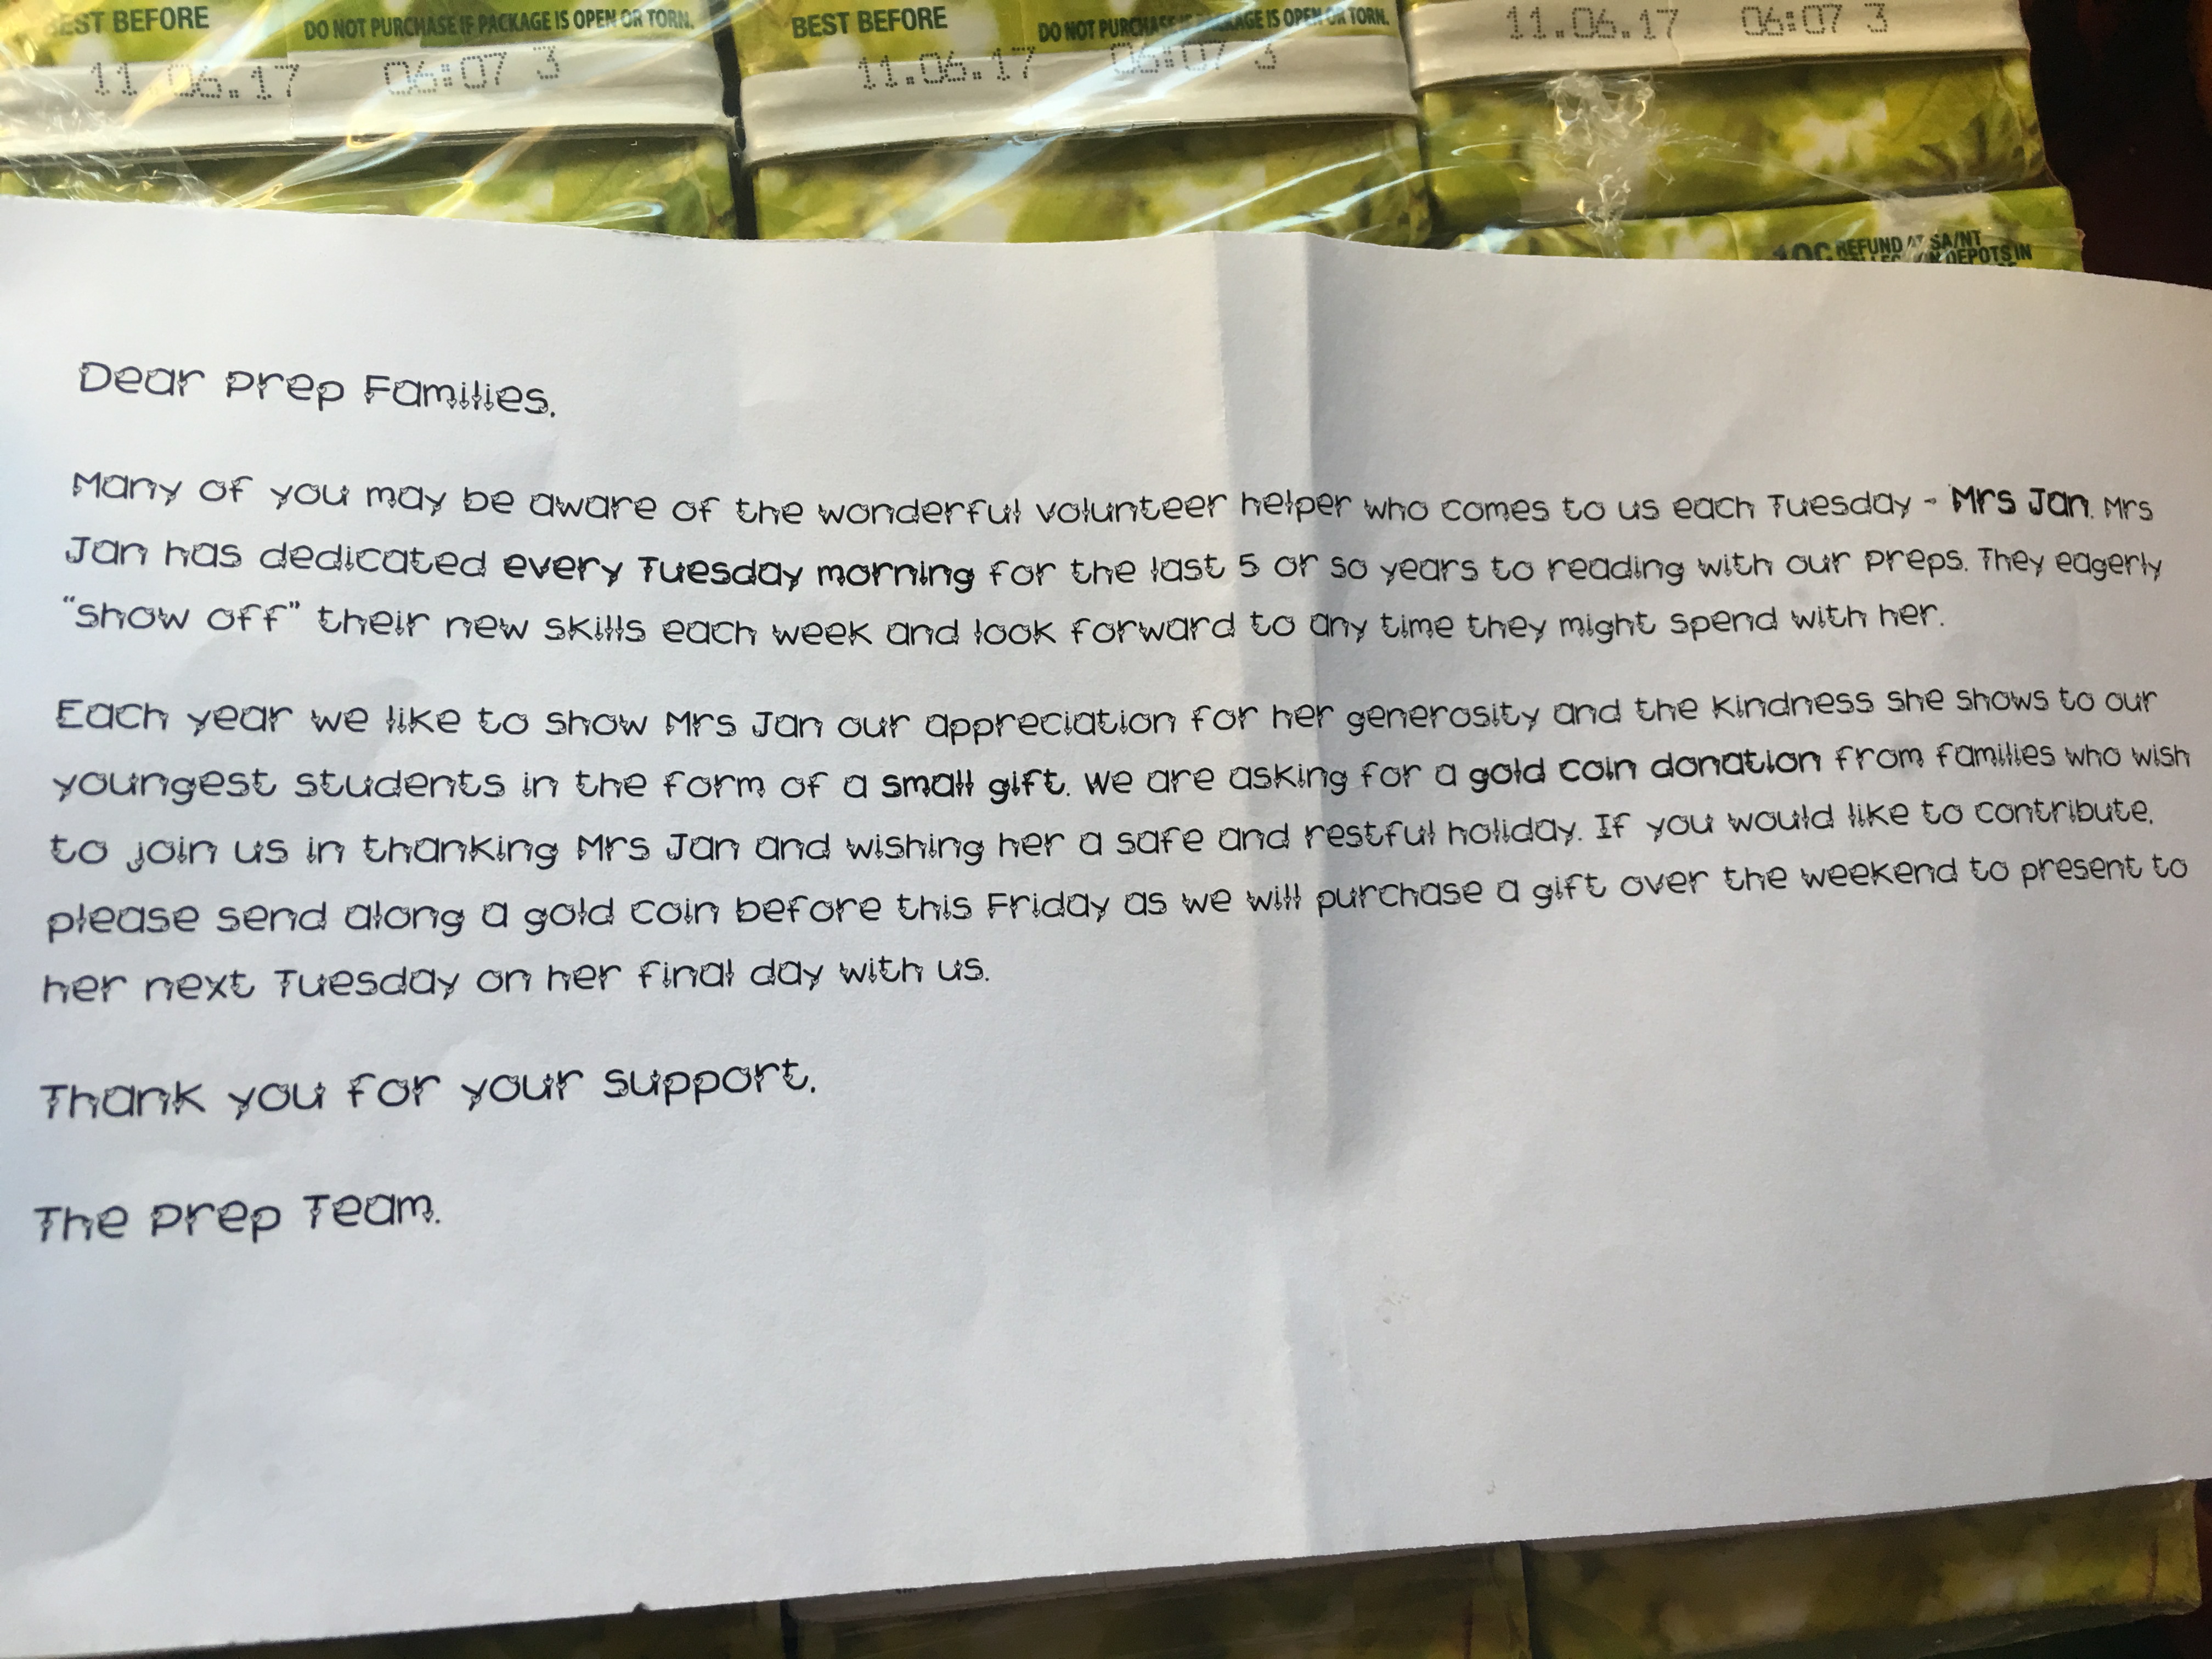 BEST BEFORE
DO NOT PURCHASE IF PACKAGE IS OPEN OR TORN.
11.06.17 06:07 3
BEST BEFORE
DO NOT PURCHASE IF PACKAGE IS OPEN OR TORN.
11.06.17 06:07 3
11.06.17 06:07 3
10c REFUND AT SA/NT
DEPOTS IN
Dear Prep Families,
Many of you may be aware of the wonderful volunteer helper who comes to us each Tuesday - Mrs Jan. Mrs
Jan has dedicated every Tuesday morning for the last 5 or so years to reading with our Preps. They eagerly
"show off" their new skills each week and look forward to any time they might spend with her.
Each year we like to show Mrs Jan our appreciation for her generosity and the kindness she shows to our
youngest students in the form of a small gift. We are asking for a gold coin donation from families who wish
to join us in thanking Mrs Jan and wishing her a safe and restful holiday. If you would like to contribute,
please send along a gold coin before this Friday as we will purchase a gift over the weekend to present to
her next Tuesday on her final day with us.
Thank you for your support,
The Prep Team.